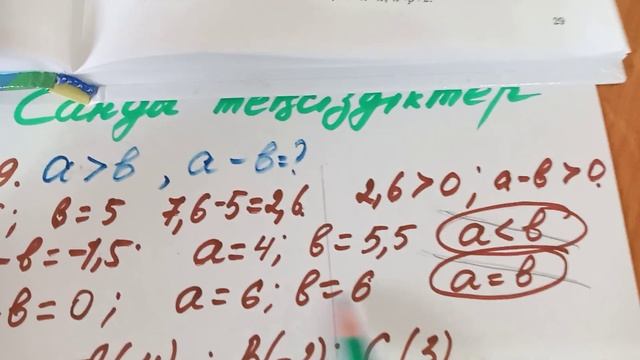 29
Санды теңсіздіктер
9. a > b, a - b = ?
; b = 5 7,6-5=2,6 2,6 > 0; a-b > 0
-b = -1,5 a = 4; b = 5,5 a < b
b = 0; a = 6; b = 6 a = b